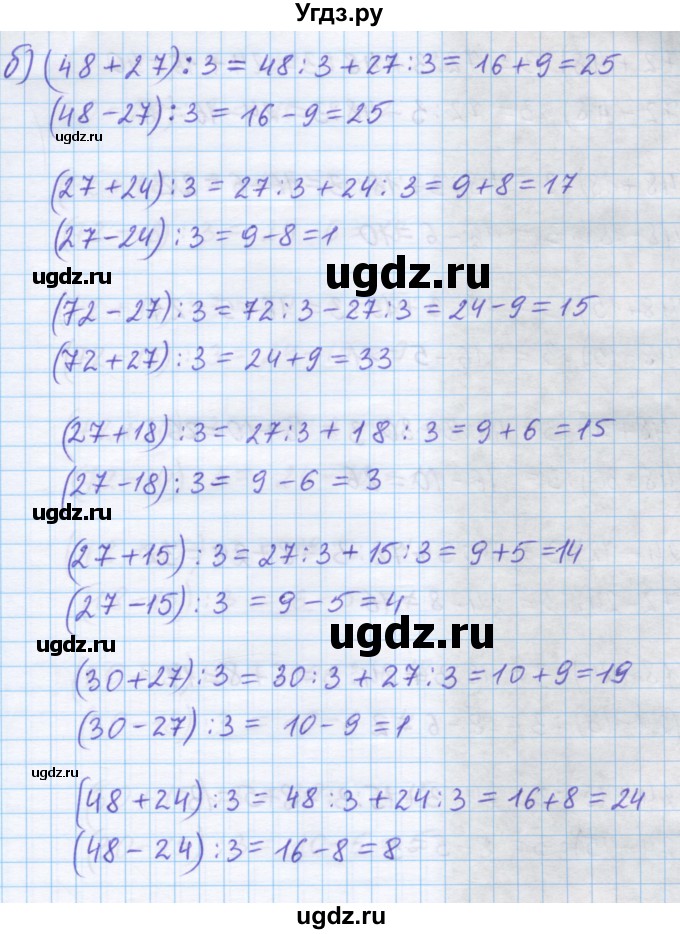 Угдз.ру
б) (48+27):3 = 48:3+27:3 = 16+9=25
(48-27):3 = 16-9=25
ugdz.ru
(27+24):3=27:3+24:3=9+8=17
(27-24):3=9-8=1
ugdz.ru
ugdz.ru
(72-27):3=72:3-27:3=24-9=15
(72+27):3=24+9=33
(27+18):3=27:3+18:3=9+6=15
(27-18):3=9-6=3
ugdz.ru
(27+15):3=27:3+15:3=9+5=14
(27-15):3=9-5=4
ugdz.ru
ugdz.ru
(30+27):3=30:3+27:3=10+9=19
(30-27):3=10-9=1
ugdz.ru
(48+24):3=48:3+24:3=16+8=24
(48-24):3=16-8=8
ugdz.ru